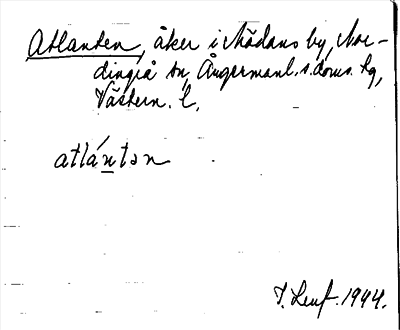 Atlanten, åker i Mädans by, Nor-
dingrå sn, Ångermanl. s. doms. tg,
Västern. l.
atlántən
I. Leuf. 1944.